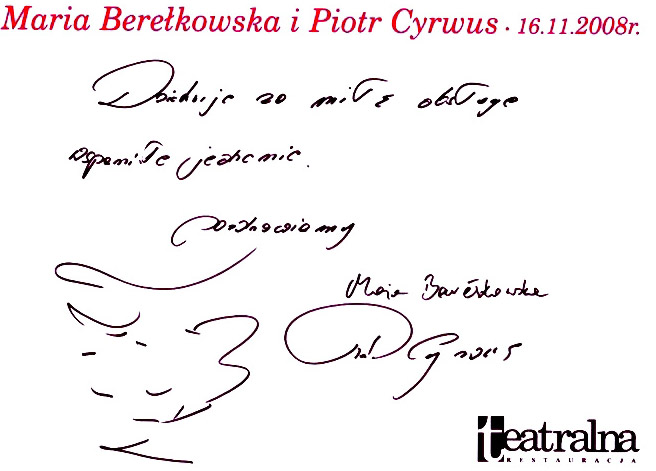 Maria Berełkowska i Piotr Cyrwus · 16.11.2008r.
Dziękuję za miłą obsługę
wspaniałe jedzenie.
pozdrawiamy
Maja Barełkowska
Piotr Cyrwus
teatralna
RESTAURACJA